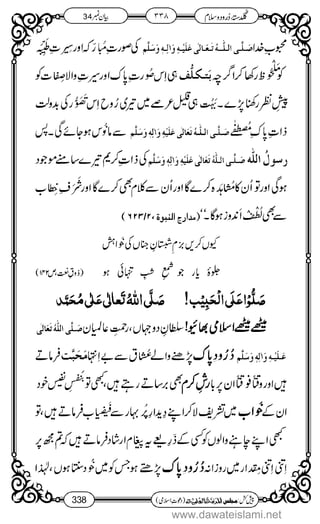 گلدستۂ درود و سلام ۳۳۸ بیان نمبر 34
محبوبِ خدا صَلَّی اللہُ تَعَالٰی عَلَیْہِ وَاٰلِہٖ وَسَلَّم کی صورتِ مبارکہ اور سیرتِ طیِّبہ
کو ملحوظ رکھا کر اگرچہ بتکلُّف ہی اس صُورتِ پاک اور سیرتِ والا صفات کو
پیشِ نظر رکھنا پڑے ۔ بہت ہی قلیل عرصے میں تیری روح اس تَصَوُّر کی بدولت
ذاتِ پاکِ مصطفٰے صَلَّی اللہُ تَعَالٰی عَلَیْہِ وَاٰلِہٖ وَسَلَّم سے مانوس ہو جائے گی ۔ پس
رسولُ اللہ صَلَّی اللہُ تَعَالٰی عَلَیْہِ وَاٰلِہٖ وَسَلَّم کی ذاتِ کریم تیرے سامنے موجود
ہو گی اور تو اُن کا مُشاہدہ کرے گا اور اُن سے کلام بھی کرے گا اور شرفِ خطاب
سے بھی لُطف اَندوز ہو گا ۔‘‘ (مدارج النبوة ۶۲۳/۲۰)
کیوں کریں بزم شبستانِ جناں کی خواہش
جلوۂ یار جو شمعِ شبِ تنہائی ہو (ذوقِ نعت،ص۱۴۲)
صَلُّوْا عَلَی الْحَبِیْب! صَلَّی اللہُ تَعَالٰی عَلٰی مُحَمَّد
میٹھے میٹھے اسلامی بھائیو! سلطانِ دوجہاں، رحمتِ عالمیان صَلَّی اللہُ تَعَالٰی
عَلَیْہِ وَاٰلِہٖ وَسَلَّم دُرُودِ پاک پڑھنے والے عُشّاق سے بے اِنتہا مَحَبَّت فرماتے
ہیں اور وقتاً فوقتاً ان پر بارشِ کرم بھی برساتے رہتے ہیں، کبھی تو بنفسِ نفیس خود
ان کے خواب میں تشریف لاکر اپنے دیدارِ پُر بہار سے فیضیاب فرماتے ہیں، تو
کبھی اپنے چاہنے والوں کو کسی کے ذریعے یہ پیغام ارشاد فرماتے ہیں کہ تم مجھ پر
اتنی اتنی مقدار میں روزانہ دُرُودِ پاک پڑھتے ہو جس کو میں خود سنتا ہوں، لہٰذا
338 پیش کش: مجلس اَلْمَدِیْنَۃُ الْعِلْمِیَّۃ (دعوتِ اسلامی)
www.dawateislami.net